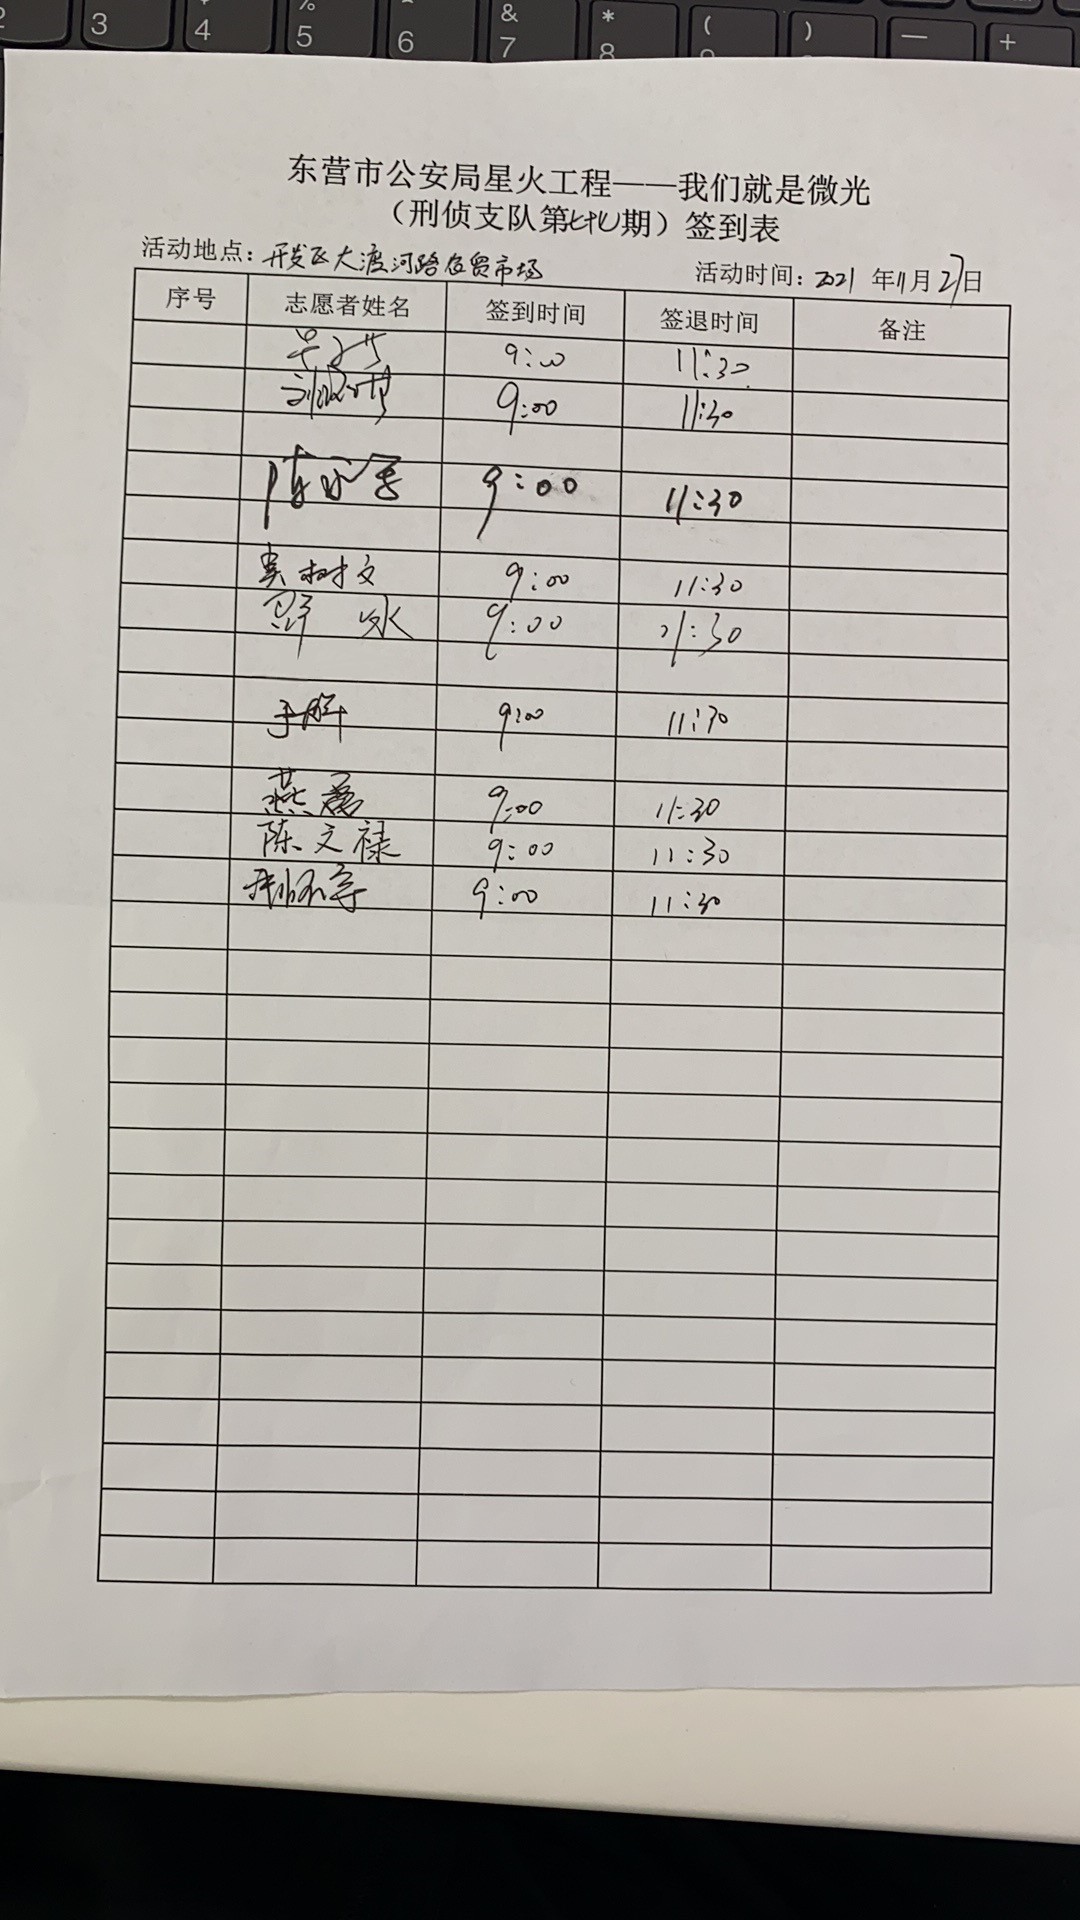 2 3 4 % 5 6 & 7 * 8 ( ) — +
东营市公安局星火工程——我们就是微光
（刑侦支队第七九期）签到表
活动地点：开发区大渡河路农贸市场 活动时间：2021 年11月27日
序号 志愿者姓名 签到时间 签退时间 备注
9:00 11:30
9:00 11:30
陈永军 9:00 11:30
黄树文 9:00 11:30
9:00 11:30
9:00 11:30
燕磊 9:00 11:30
陈文禄 9:00 11:30
9:00 11:30